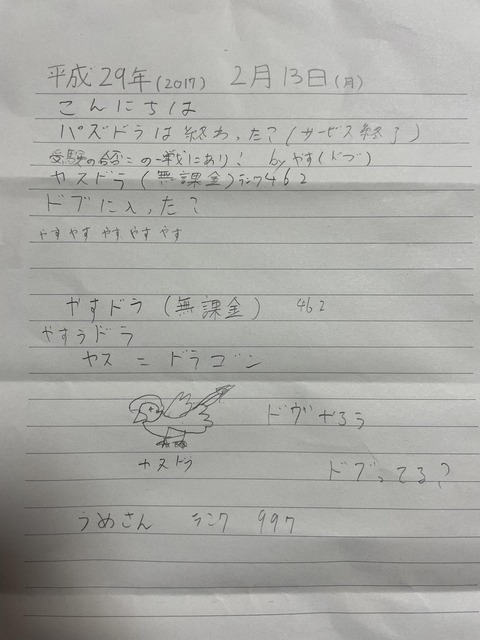 平成29年(2017) 2月13日(月)
こんにちは
パズドラは終わった?(サービス終了)
受験の合否この一戦にあり! byやす(ドブ)
ヤスドラ(無課金)ランク462
ドブに入った?
やす やす やす やす やす
やすドラ(無課金) 462
やすうドラ
ヤス=ドラゴン
ドヴやろう
ヤスドラ
ドブってる?
うめさん ランク 997